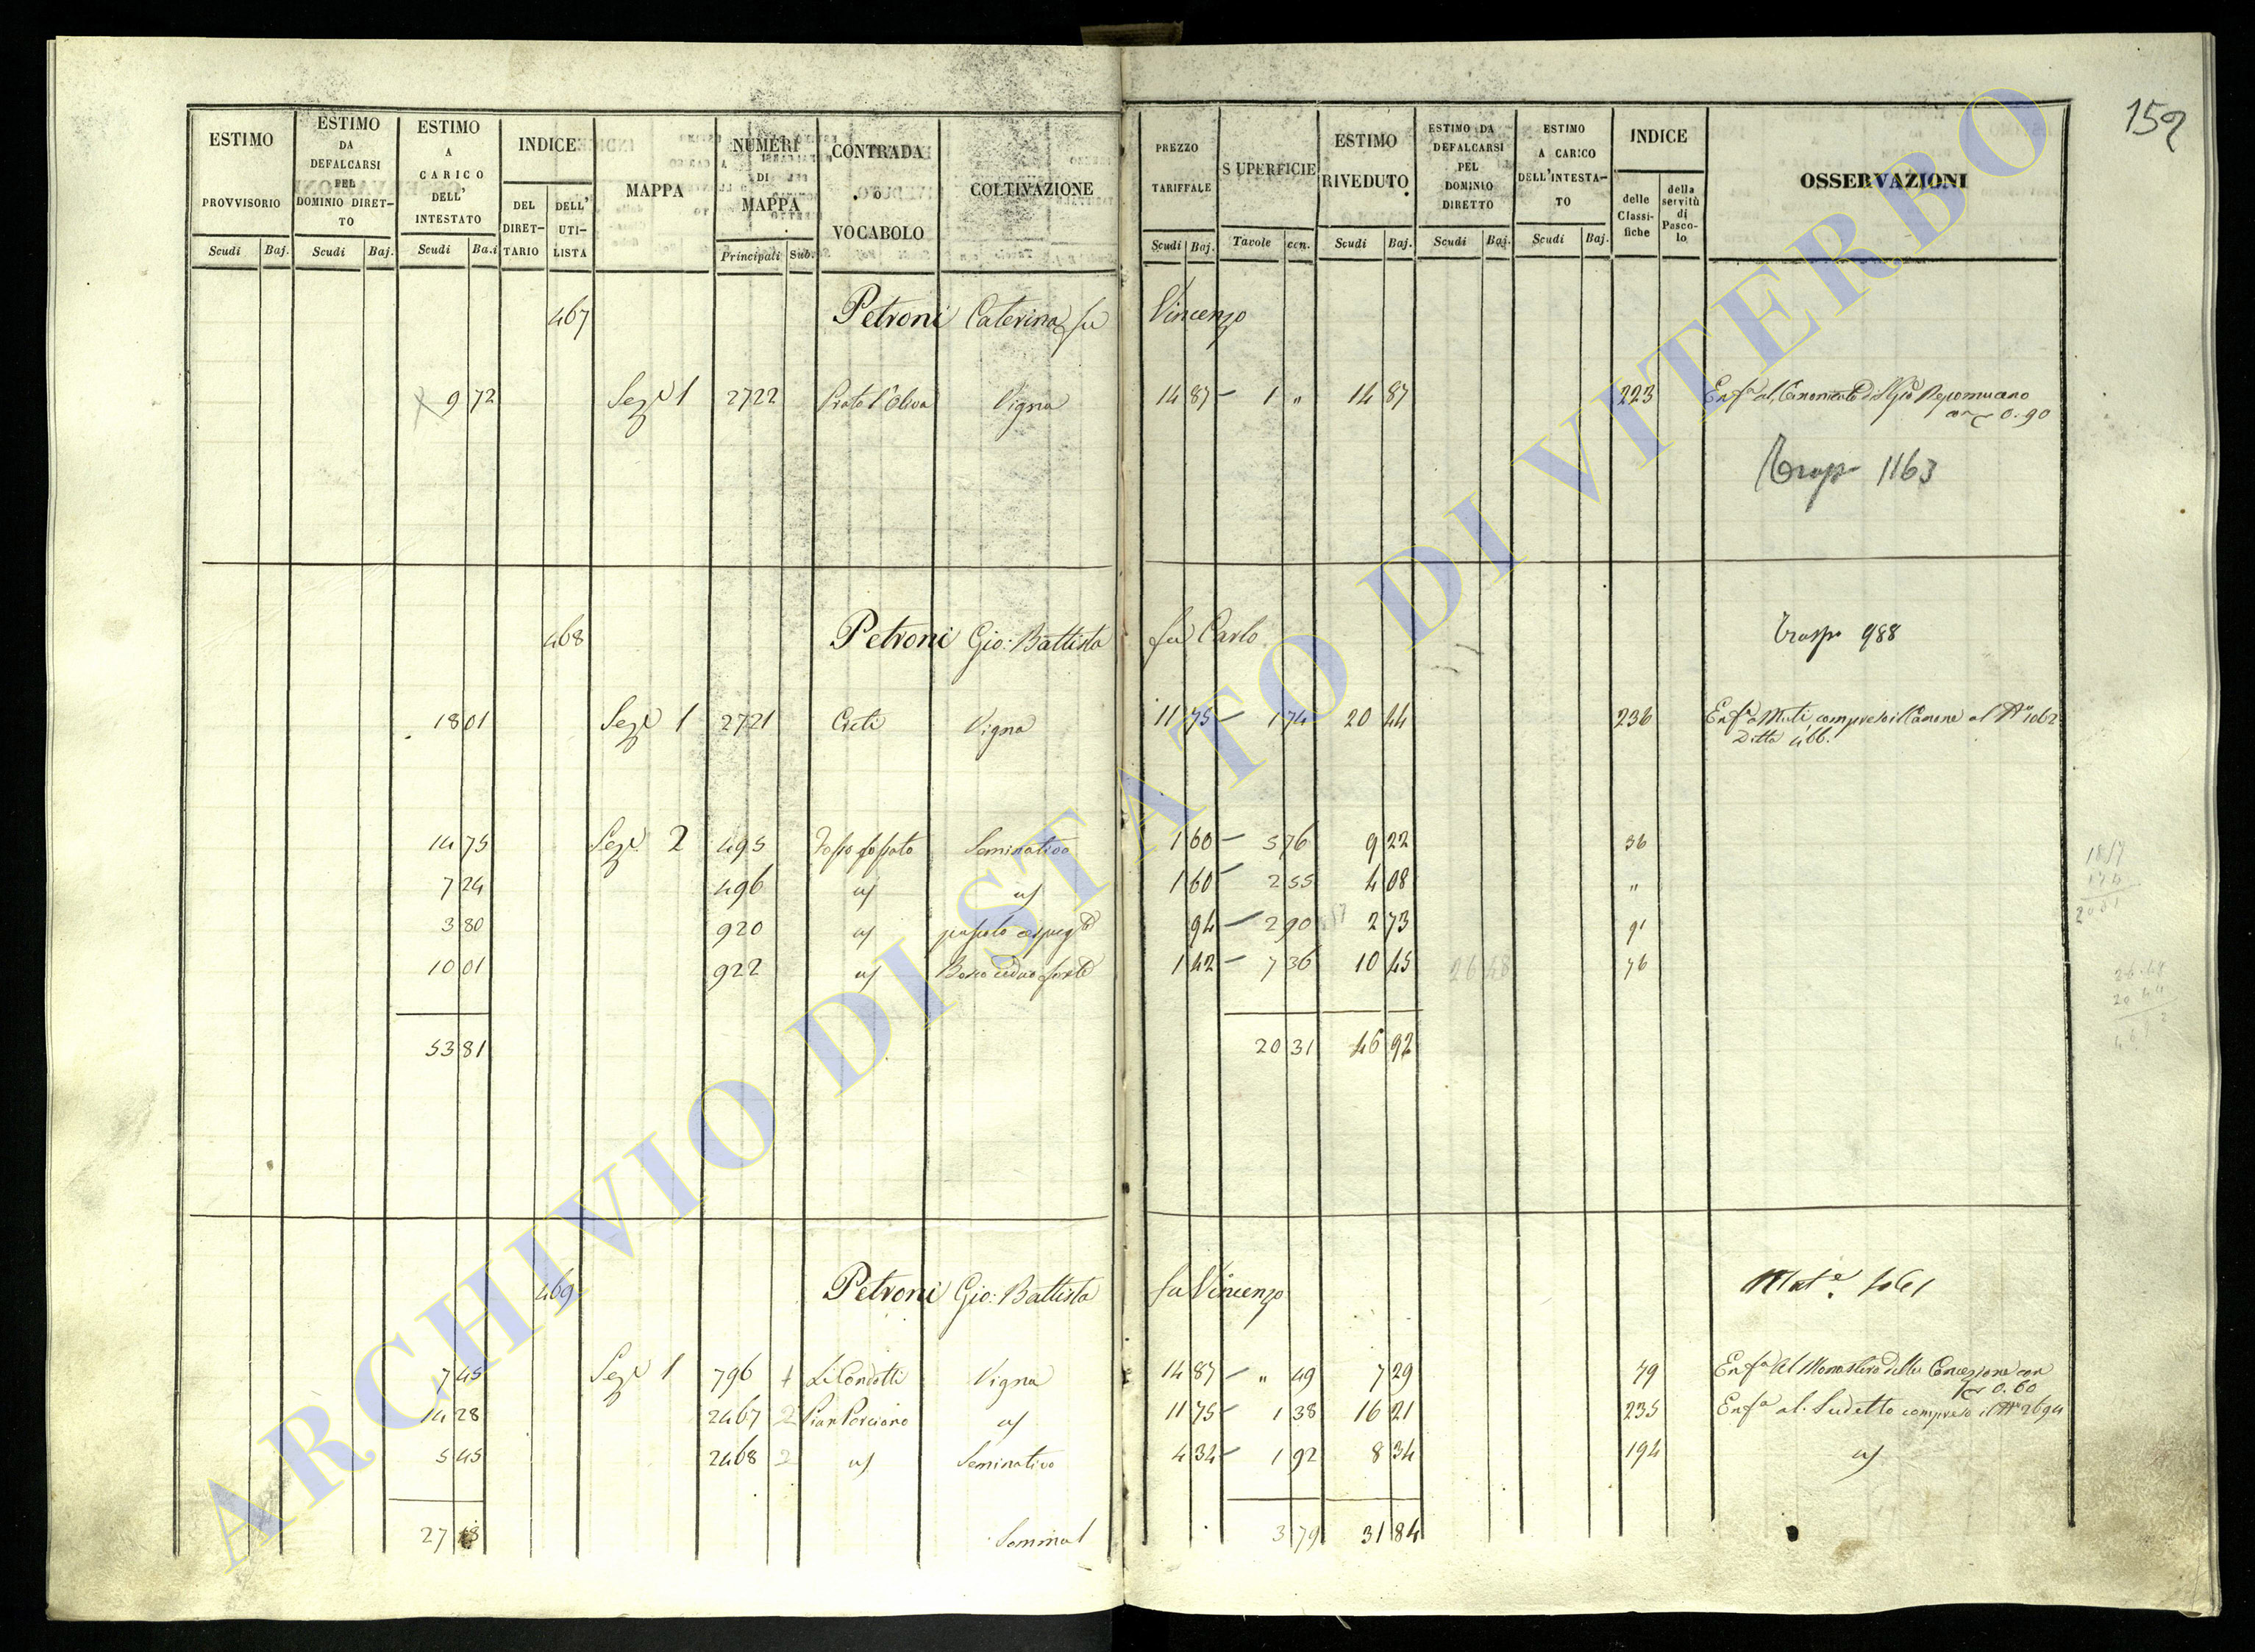 159
ESTIMO PROVVISORIO
ESTIMO DA DEFALCARSI PEL DOMINIO DIRET-TO
ESTIMO A CARICO DELL' INTESTATO
INDICE
DEL DIRET-TARIO
DELL' UTI-LISTA
MAPPA
NUMERI DI MAPPA
CONTRADA o VOCABOLO
COLTIVAZIONE
PREZZO TARIFFALE
SUPERFICIE
ESTIMO RIVEDUTO
ESTIMO DA DEFALCARSI PEL DOMINIO DIRETTO
ESTIMO A CARICO DELL'INTESTA-TO
INDICE
delle Classi-fiche
della servitù di Pasco-lo
OSSERVAZIONI
Scudi Baj. Scudi Baj. Scudi Ba.i Principali Sub. Scudi Baj. Tavole cen. Scudi Baj. Scudi Baj. Scudi Baj.
467 Petroni Caterina fu Vincenzo
9 72 Sez.e 1 2722 Prato l'Oliva Vigna 14 87 - 1 " 14 87 223 Enf.a al
0.90
Trasp 1163
468 Petroni Gio: Battista fu Carlo Trasp 988
18 01 Sez.e 1 2721 Creti Vigna 11 75 - 1 74 20 44 236 Enf.a Muti compreso il Canone al N° 1062
Ditta 466.
14 75 Sez.e 2 495 Seminativo 1 60 - 5 76 9 22 36
7 24 496 1 60 - 2 55 4 08 "
3 80 920 94 - 2 90 2 73 91
10 01 922 Bosco ceduo forte 1 42 - 7 36 10 45 26 48 76
53 81 20 31 46 92
469 Petroni Gio: Battista fu Vincenzo Mat.e 1061
7 45 Sez.e 1 796 Li Condotti Vigna 14 87 - " 49 7 29 79 Enf.a al Monastero della Concezione con
0.60
14 28 2467 2 Pian Porciano 11 75 - 1 38 16 21 235 Enf.a al Sudetto compreso il N° 2694
5 45 2468 2 Seminativo 4 34 - 1 92 8 34 194
27 18 3 79 31 84
ARCHIVIO DI STATO DI VITERBO